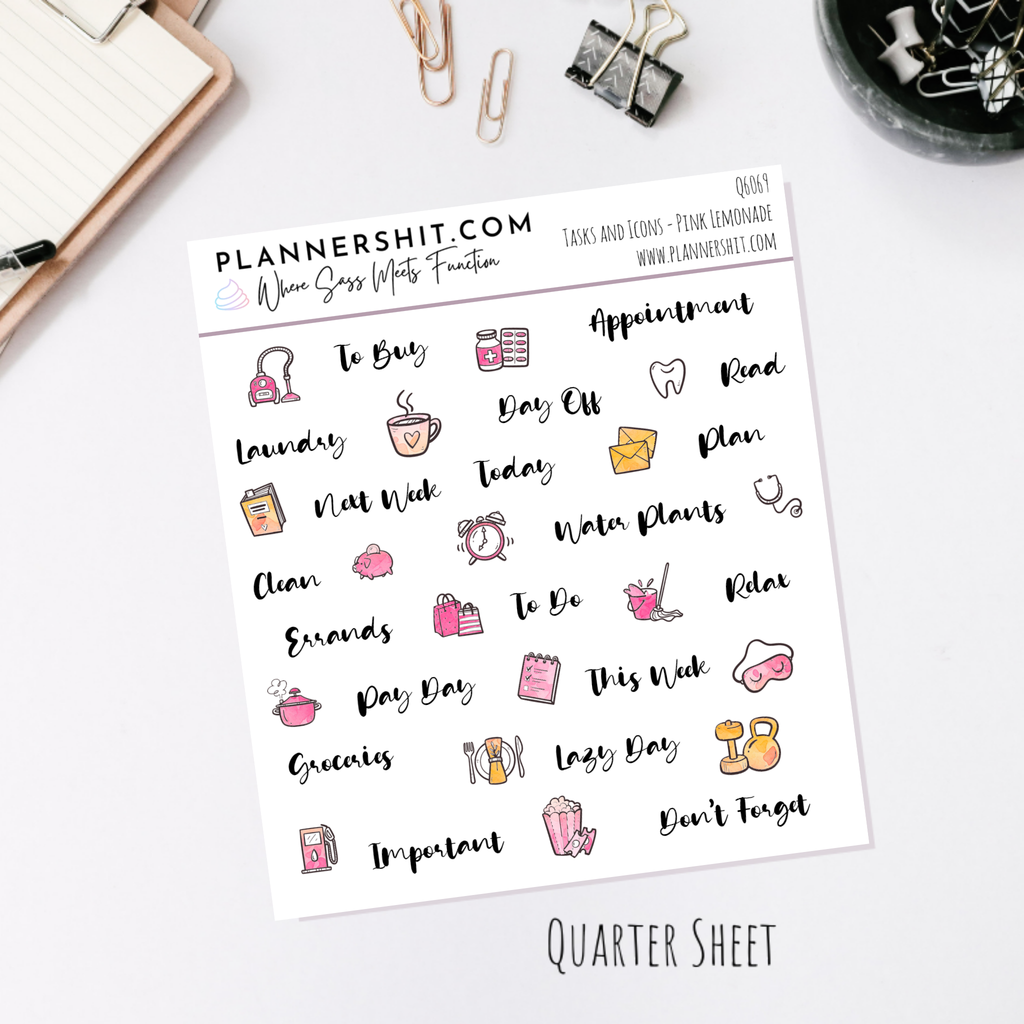 Q6069
PLANNERSHIT.COM
Tasks and Icons - Pink Lemonade
Where Sass Meets Function
www.plannershit.com
Appointment
To Buy
Read
Day Off
Laundry
Plan
Today
Next Week
Water Plants
Clean
Relax
To Do
Errands
This Week
Pay Day
Lazy Day
Groceries
Don't Forget
Important
Quarter Sheet